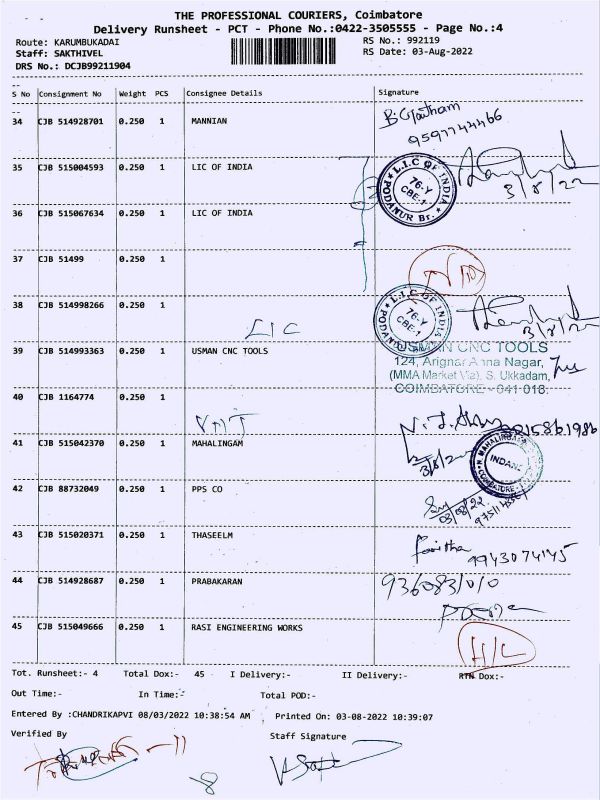 THE PROFESSIONAL COURIERS, Coimbatore
Delivery Runsheet - PCT - Phone No.:0422-3505555 - Page No.:4
Route: KARUMBUKADAI RS No.: 992119
Staff: SAKTHIVEL RS Date: 03-Aug-2022
DRS No.: DCJB99211904
S No Consignment No Weight PCS Consignee Details Signature
34 CJB 514928701 0.250 1 MANNIAN B. Gautham
9597744466
35 CJB 515004593 0.250 1 LIC OF INDIA
L.I.C OF INDIA
76-Y
CBE-1
PODANUR Br.
3/8/22
36 CJB 515067634 0.250 1 LIC OF INDIA
37 CJB 51499 0.250 1
38 CJB 514998266 0.250 1
LIC
L.I.C OF INDIA
76-Y
CBE-1
3/8/22
39 CJB 514993363 0.250 1 USMAN CNC TOOLS
USMAN CNC TOOLS
124, Arignar Anna Nagar,
(MMA Market Via), S. Ukkadam,
COIMBATORE - 641 018.
40 CJB 1164774 0.250 1
41 CJB 515042370 0.250 1 MAHALINGAM
INDANE
COIMBATORE
42 CJB 88732049 0.250 1 PPS CO
03/08/22
43 CJB 515020371 0.250 1 THASEELM
Faritha 9943074145
44 CJB 514928687 0.250 1 PRABAKARAN
45 CJB 515049666 0.250 1 RASI ENGINEERING WORKS
Tot. Runsheet:- 4 Total Dox:- 45 I Delivery:- II Delivery:- RTN Dox:-
Out Time:- In Time:- Total POD:-
Entered By :CHANDRIKAPVI 08/03/2022 10:38:54 AM Printed On: 03-08-2022 10:39:07
Verified By Staff Signature